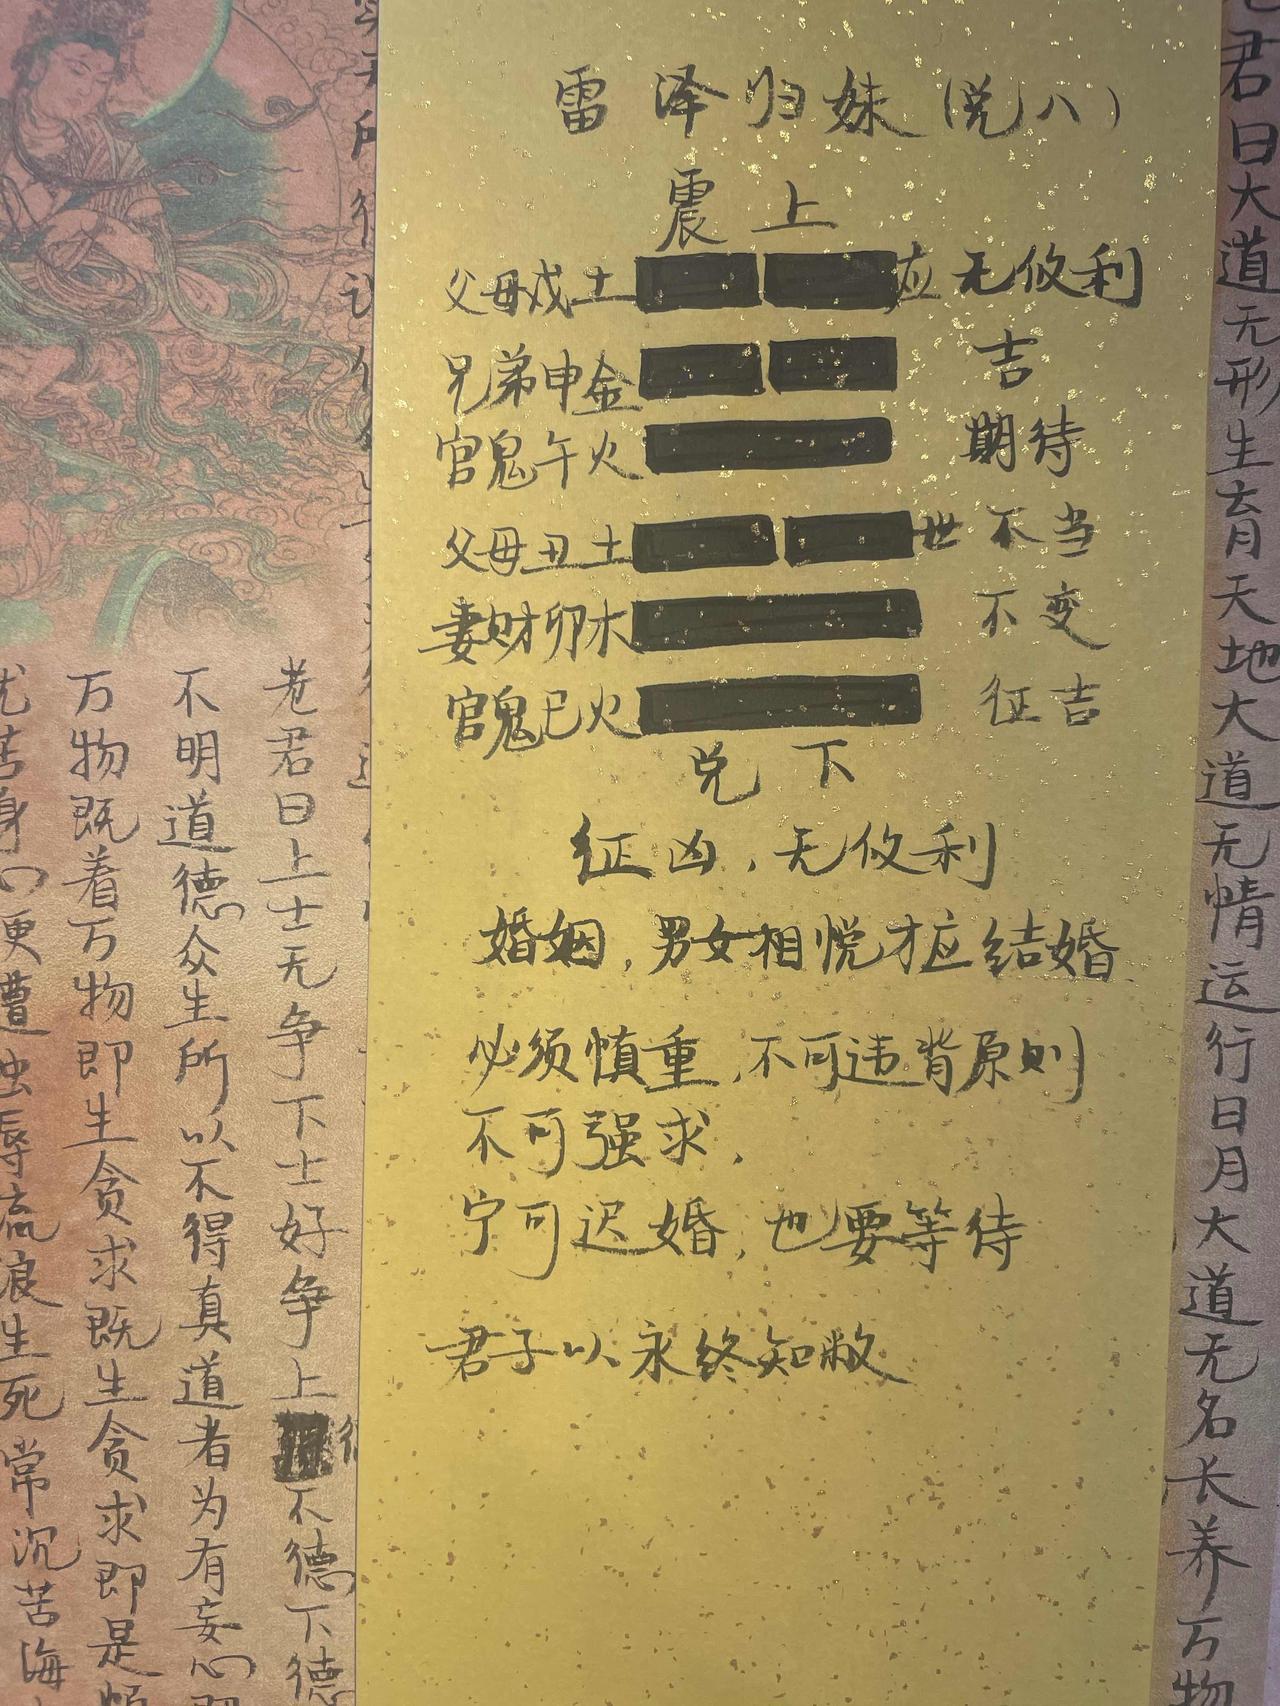 雷泽归妹（兑八）
震上
父母戌土 应 无攸利
兄弟申金 吉
官鬼午火 期待
父母丑土 世 不当
妻财卯木 不变
官鬼巳火 征吉
兑下
征凶，无攸利
婚姻，男女相悦才应结婚
必须慎重，不可违背原则
不可强求，
宁可迟婚，也要等待
君子以永终知敝
君曰大道无形生育天地大道无情运行日月大道无名长养万物
老君曰上士无争下士好争上不德下德
不明道德众生所以不得真道者为有妄心
万物既着万物即生贪求既生贪求即是
苦身心更遭虫辱流浪生死常沉苦海